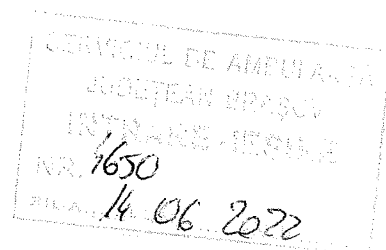 SERVICIUL DE AMBULANȚĂ
JUDEȚEAN BRAȘOV
INTRARE-IEȘIRE
NR. 1650
ZIUA 14 06 2022